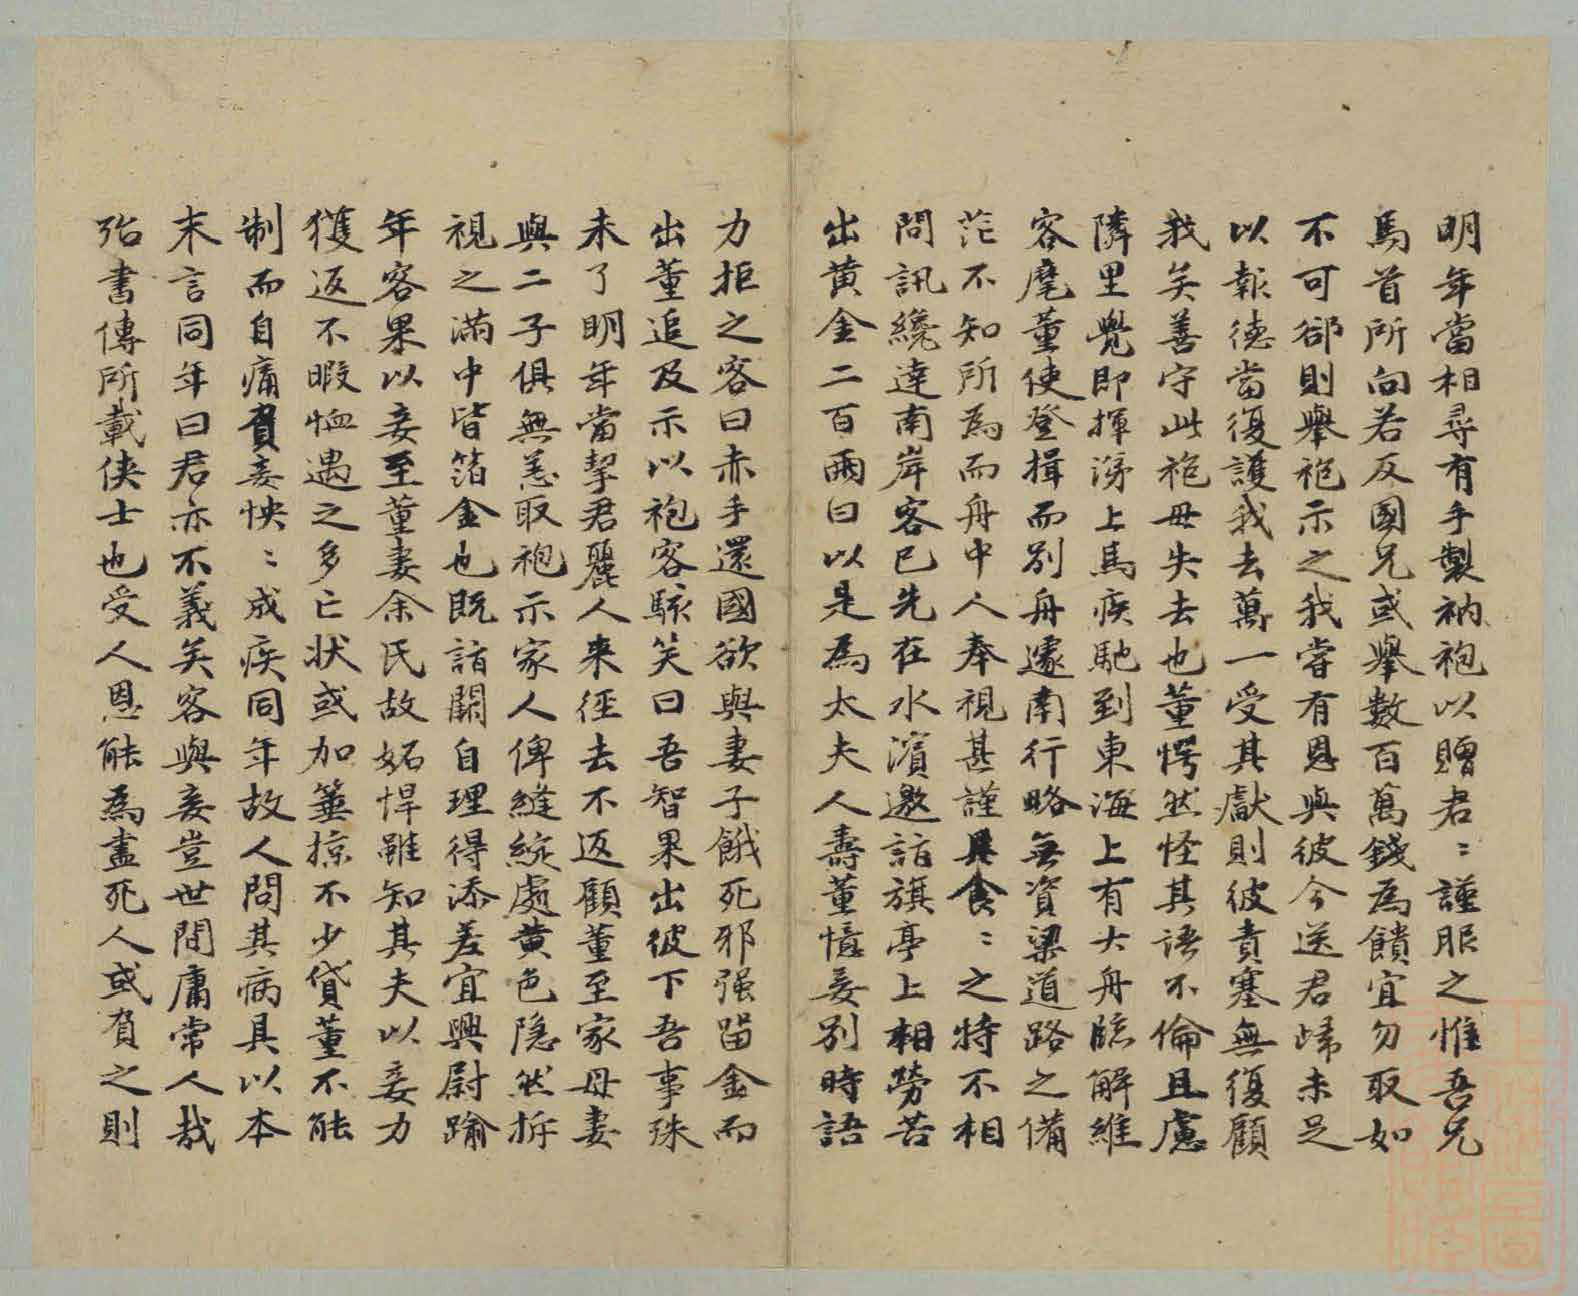 明年當相尋有手製衲袍以贈君〻謹服之惟吾兄
馬首所向若反國兄或舉數百萬錢為饋宜勿取如
不可郤則舉袍示之我嘗有恩與彼今送君歸未足
以報德當復護我去萬一受其獻則彼責塞無復顧
我矣善守此袍毋失去也董愕然怪其語不倫且慮
隣里覺即揮涕上馬疾馳到東海上有大舟臨解維
客麾董使登揖而別舟遽南行略無資粱道路之備
茫不知所為而舟中人奉視甚謹具食〻之特不相
問訊纔達南岸客已先在水濱邀詣旗亭上相勞苦
出黃金二百兩曰以是為太夫人壽董憶妾別時語
力拒之客曰赤手還國欲與妻子餓死邪强畱金而
出董追及示以袍客駭笑曰吾智果出彼下吾事殊
未了明年當挈君麗人来徑去不返顧董至家母妻
與二子俱無恙取袍示家人俾縫綻處黄色隱然拆
視之滿中皆箔金也既詣闕自理得添差宜興尉踰
年客果以妾至董妻余氏故妬悍雖知其夫以妾力
獲返不暇恤遇之多亡状或加箠掠不少貸董不能
制而自痛負妾怏〻成疾同年故人問其病具以本
末言同年曰君亦不義矣客與妾豈世間庸常人哉
殆書傳所載俠士也受人恩能為盡死人或負之則